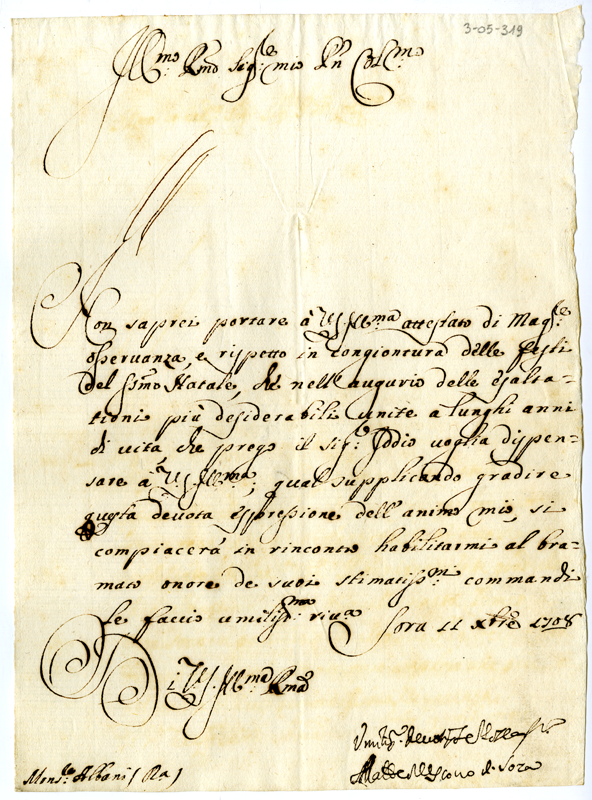 3-05-319
Ill.mo Rmo Sig.re mio Pn Col.mo
Non saprei portare à V.S. Ill.ma attestato di Mag.re
osservanza, e rispetto in congiontura delle festi
del Ss.mo Natale, che nell'augurio delle esalta=
tioni più desiderabili unite a lunghi anni
di vita che prego il Sig.r Iddio voglia dispen=
sare à V.S. Ill.ma; qual supplicando gradire
questa devota espressione dell'animo mio, si
compiacerà in rincontro habilitarmi al bra=
mato onore de suoi stimatiss.mi commandi
le faccio umiliss.ma riv.a Sora 11 Xbre 1708
D V.S. Ill.ma Rma
Vescovo di Sora
Mons.re Albani (Ra)